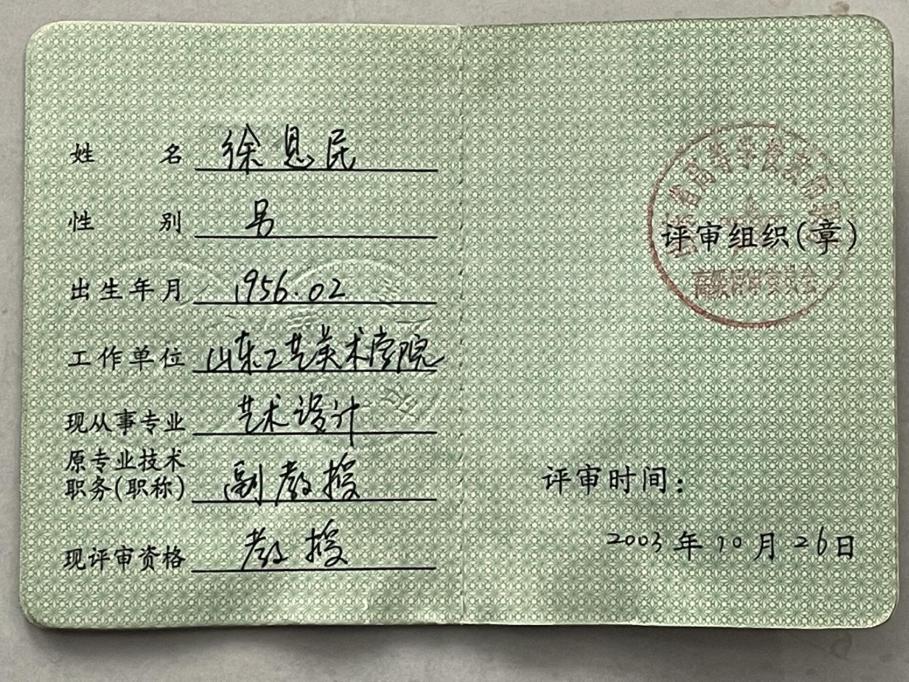 姓名 徐恩民
性别 男
出生年月 1956.02
工作单位 山东工艺美术学院
现从事专业 艺术设计
原专业技术
职务(职称) 副教授
现评审资格 教授
省高等学校教师
高级评审委员会
评审组织(章)
评审时间：
2003年10月26日